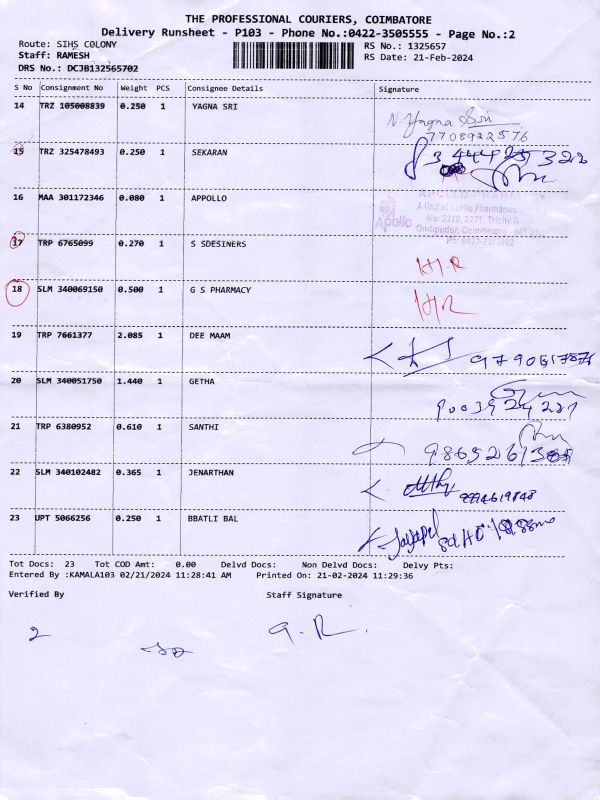 THE PROFESSIONAL COURIERS, COIMBATORE
Delivery Runsheet - P103 - Phone No.:0422-3505555 - Page No.:2
Route: SIHS COLONY RS No.: 1325657
Staff: RAMESH RS Date: 21-Feb-2024
DRS No.: DCJB132565702
S No Consignment No Weight PCS Consignee Details Signature
14 TRZ 105008839 0.250 1 YAGNA SRI N. Yagna Sri
7708922576
15 TRZ 325478493 0.250 1 SEKARAN
16 MAA 301172346 0.080 1 APPOLLO
Apollo A Unit of Apollo Pharmacies
No. 2270, 2271, Trichy
Ondipudur, Coimbatore
17 TRP 6765099 0.270 1 S SDESINERS H.R
18 SLM 340069150 0.500 1 G S PHARMACY H.R
19 TRP 7661377 2.085 1 DEE MAAM
20 SLM 340051750 1.440 1 GETHA
9003924227
21 TRP 6380952 0.610 1 SANTHI
22 SLM 340102482 0.365 1 JENARTHAN
23 UPT 5066256 0.250 1 BBATLI BAL
Tot Docs: 23 Tot COD Amt: 0.00 Delvd Docs: Non Delvd Docs: Delvy Pts:
Entered By :KAMALA103 02/21/2024 11:28:41 AM Printed On: 21-02-2024 11:29:36
Verified By Staff Signature
2 G. R.